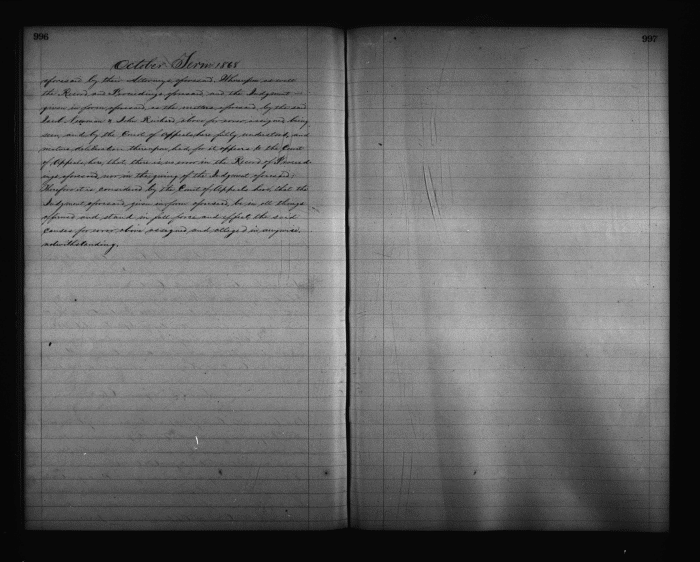 996
997
October Term 1868
aforesaid by their Attorneys aforesaid. Whereupon as well
the Record and Proceedings aforesaid, and the Judgment
given in form aforesaid, as the matters aforesaid by the said
& John above for error assigned being
seen, and by the Court of Appeals here fully understood, and
mature deliberation thereupon had, for it appears to the Court
of Appeals here, that there is no error in the Record & Proceed-
ings aforesaid, nor in the giving of the Judgment aforesaid:
Therefore it is considered by the Court of Appeals here that the
Judgment aforesaid, given in form aforesaid, be in all things
affirmed and stand in full force and effect, the said
causes for error above assigned and alleged in anywise
notwithstanding.